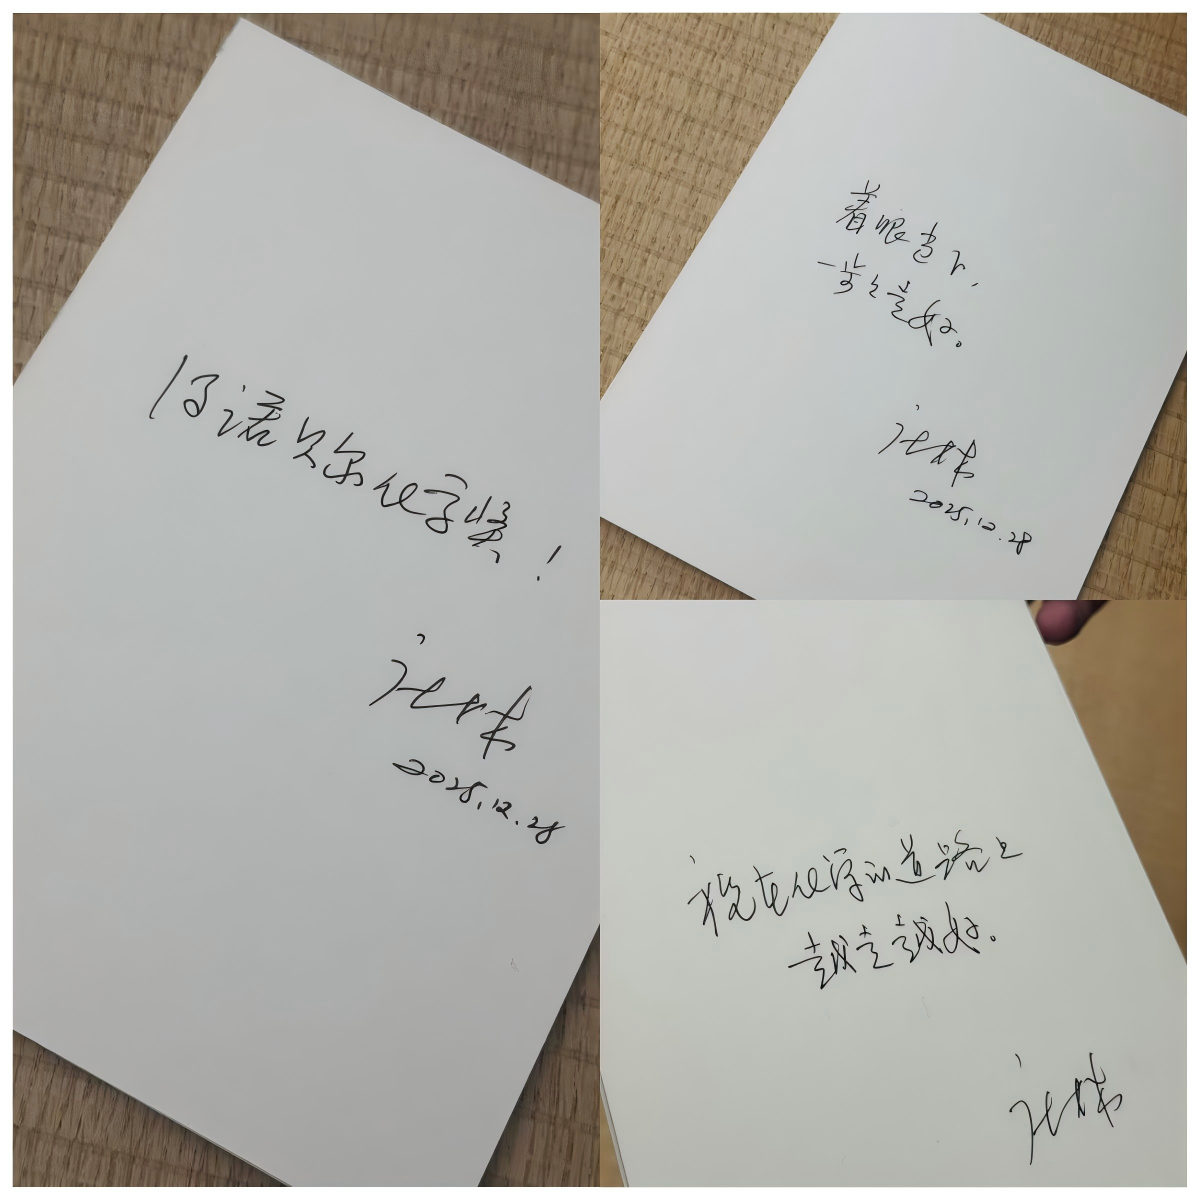 问诺贝尔化学奖!
2025.12.28
着眼当下,
一步步走好。
2025.12.28
祝在化学的道路上
越走越好。